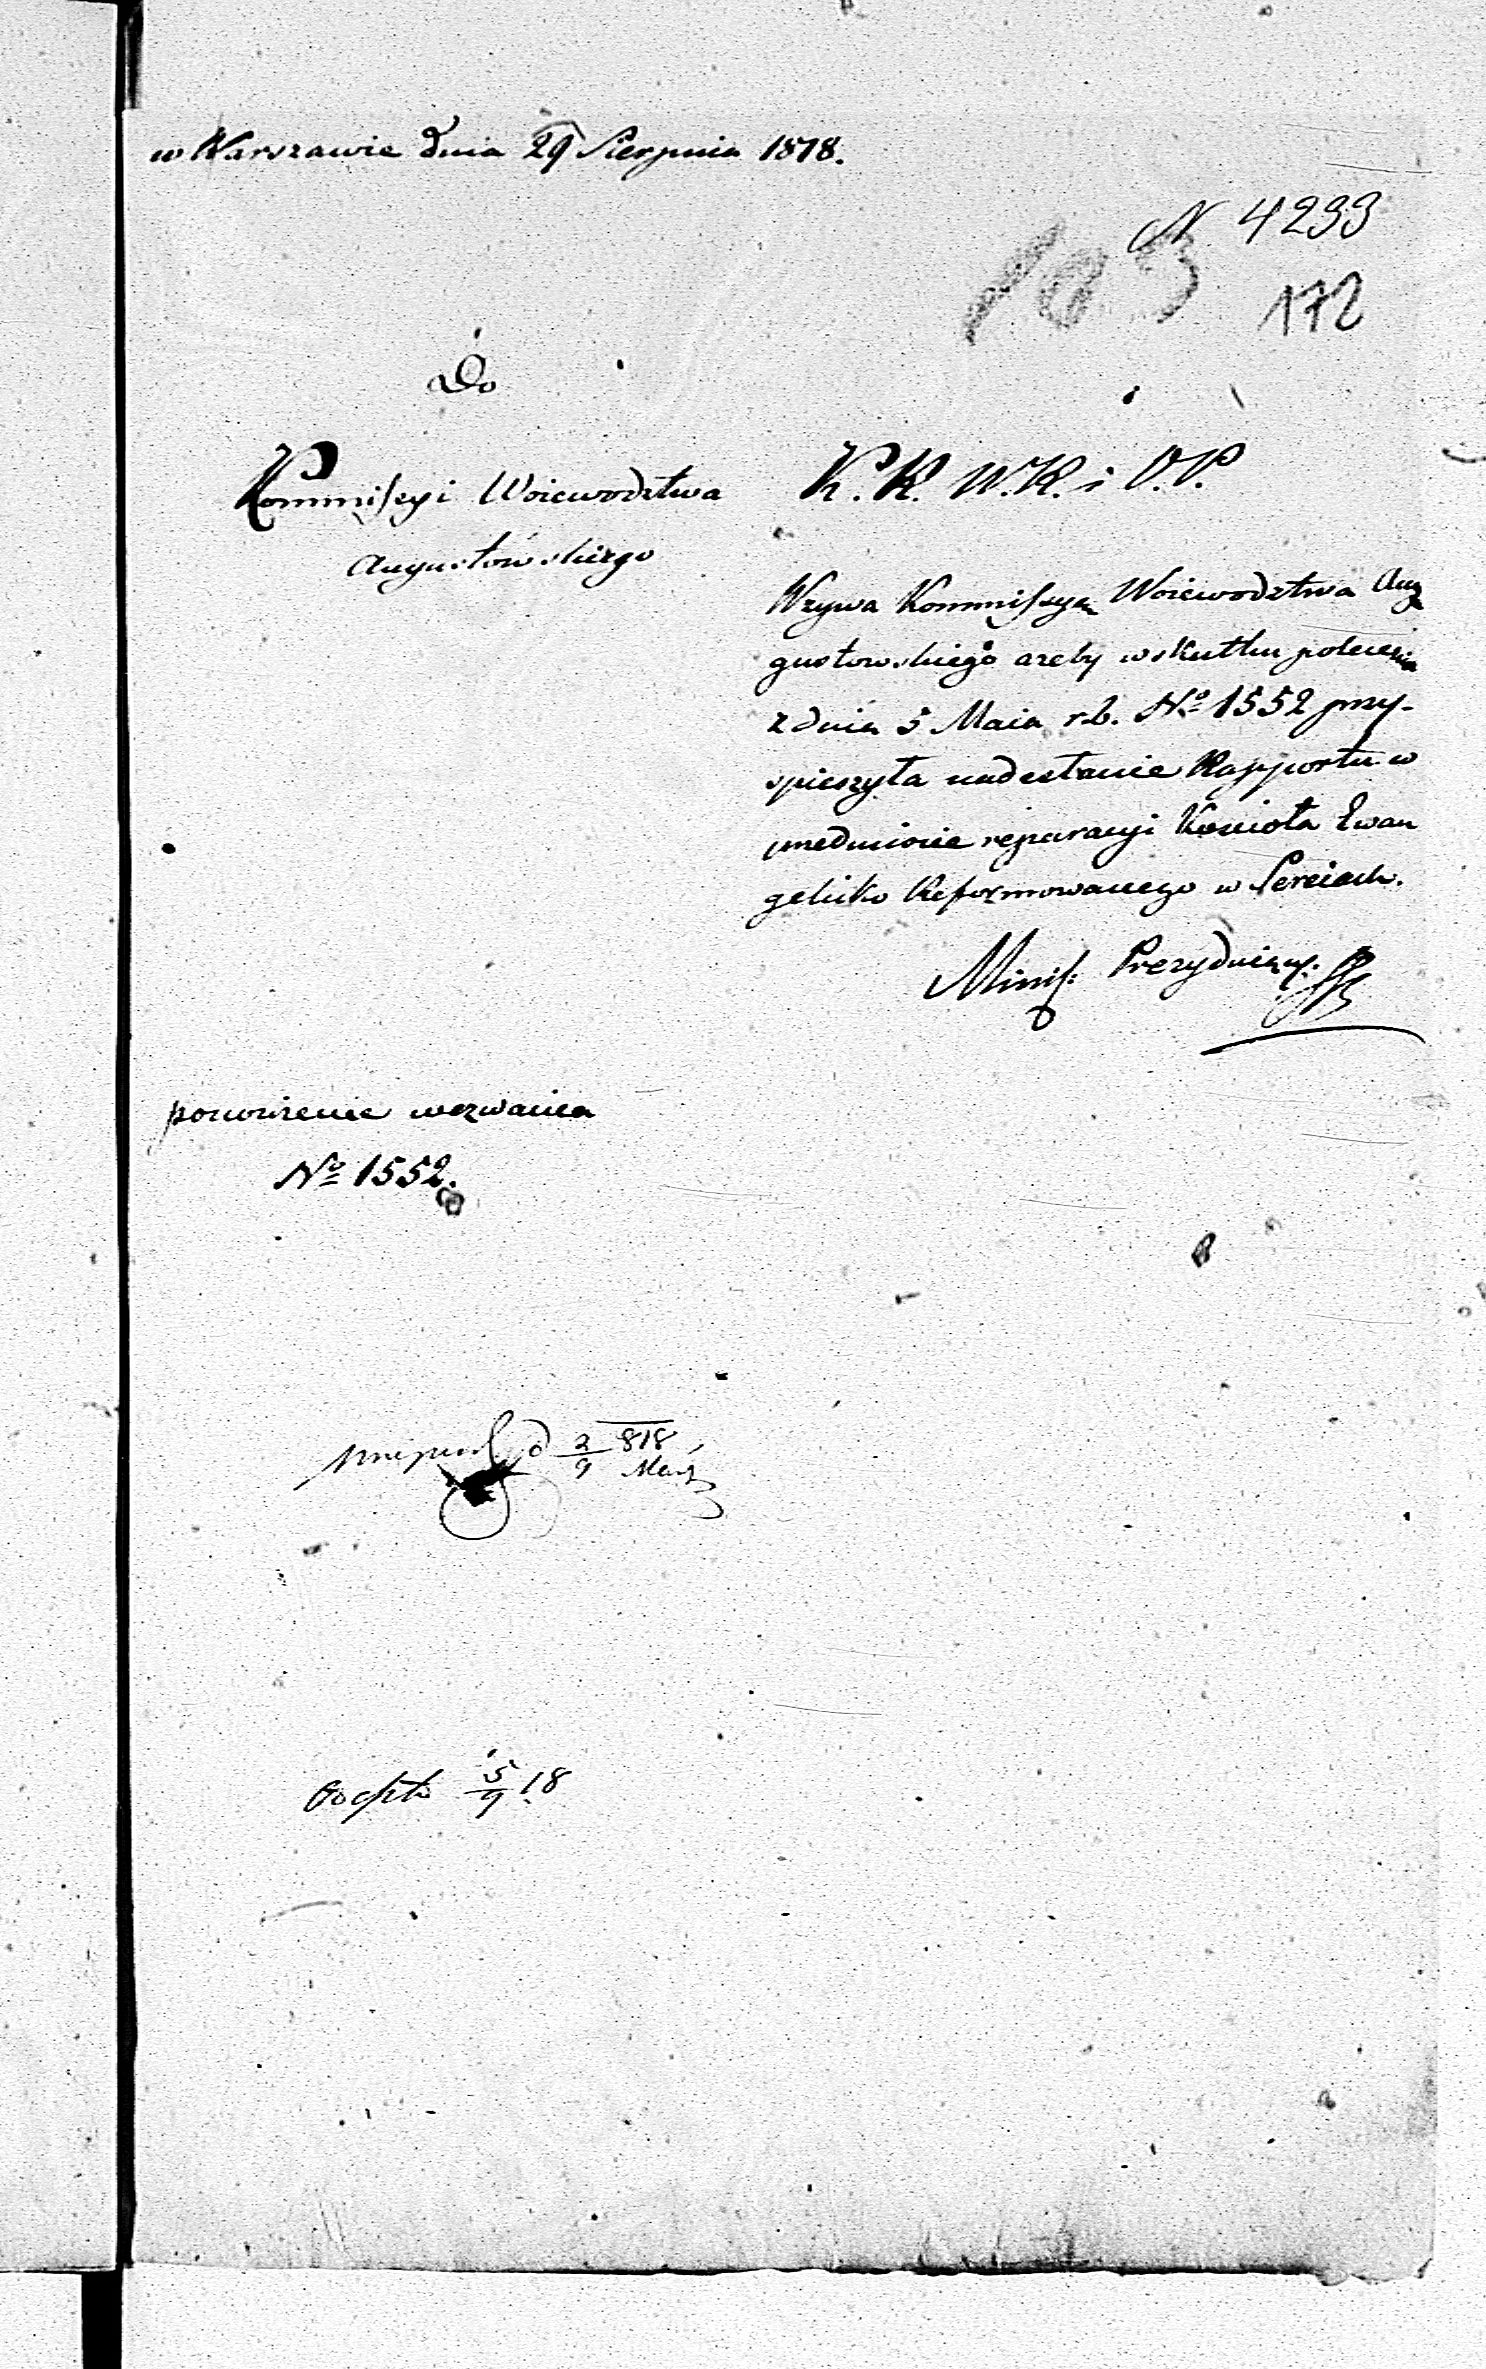 w Warszawie dnia 29 Sierpnia 1818.
N 4233
103
172
Do
Kommissyi Woiewodztwa
Augustowskiego
K. R. W. R. i O. P.
Wzywa Kommissyą Woiewodztwa Au
gustowskiego ażeby w skutku polecenia
z dnia 5 Maia r.b. No 1552 przy-
spieszyła nadesłanie Rapportu w
przedmiocie reparacyi Kościoła Ewan
gelicko Reformowanego w Sereiach.
Minis: Prezyduiący.
ponowienie wezwania
No 1552.
d 2/9 818
5/9 18